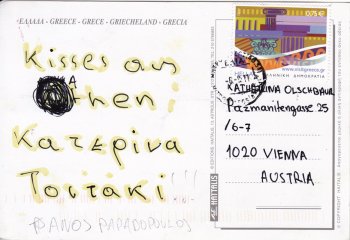 ΕΛΛΑΔΑ - GREECE - GRECE - GRIECHELAND - GRECIA
Kisses aus
Athen!
Κατερίνα
Τουτάκι
PANOS PAPADOPOULOS
0,75€
www.visitgreece.gr
ΕΛΛΗΝΙΚΗ ΔΗΜΟΚΡΑΤΙΑ
KATHARINA OLSCHBAUR
Pazmanitengasse 25
/6-7
1020 VIENNA
AUSTRIA
HAITALIS